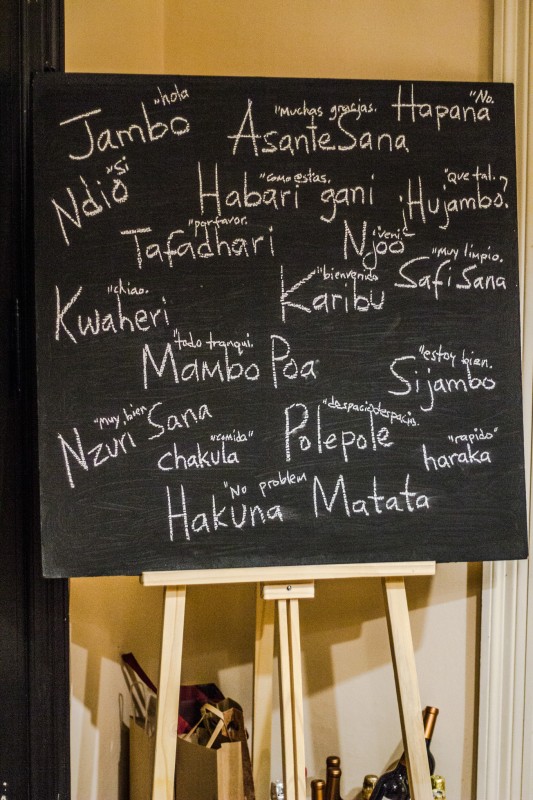 "hola
Jambo
"Muchas gracias.
Asante Sana
"No.
Hapana
"Si
Ndio
"como estas.
Habari gani
"Que tal.
¡Hujambo?
"por favor.
Tafadhari
"veni.
Njoo
"Muy limpio.
Safi Sana
"chiao.
Kwaheri
"bienvenido
Karibu
"todo tranqui.
Mambo Poa
"estoy bien.
Sijambo
"Muy bien
Nzuri Sana
"comida"
chakula
"despacio despacio.
Polepole
"rapido"
haraka
"No problem
Hakuna Matata